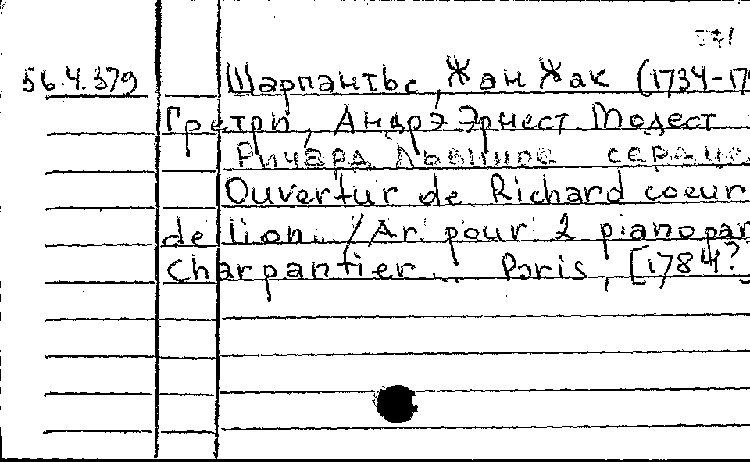 56.4.379 Шарпантье, Жан Жак (1734-17
Гретри, Андрэ Эрнест Модест
Ричард Львиное сердце
Ouvertur de Richard coeur
de lion. /Ar. pour 2 pianopar
Charpantier... Paris, [1784?]